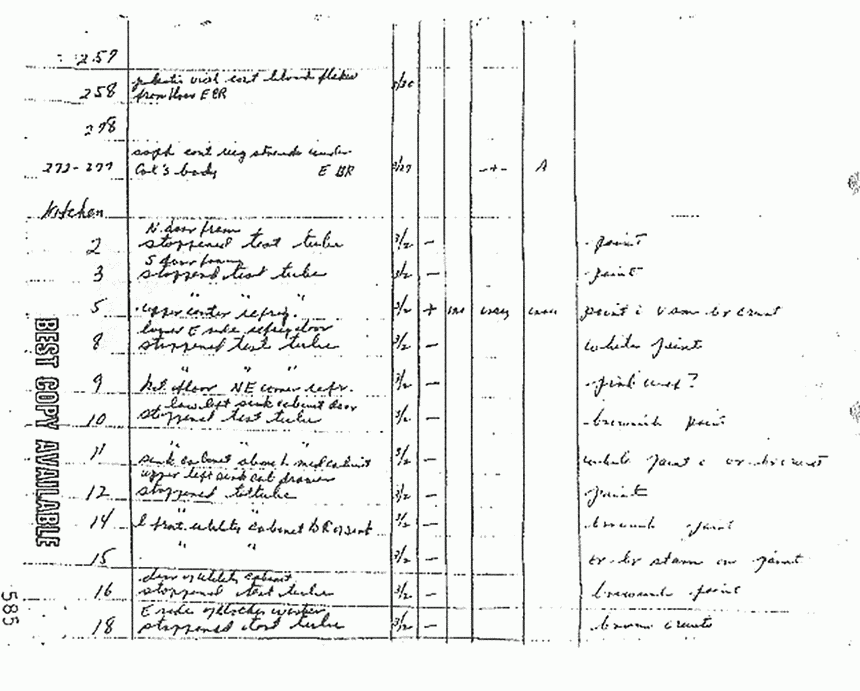 257
258 plastic vial cont blood flakes
from floor E BR 3/30
278
272-277 Col's body E BR 3/27 -+- A
Kitchen
N. door frame
2 stoppered test tube 3/2 - paint
S door frame
3 stoppered test tube 3/2 - paint
" " "
5 upper center refrig. 3/2 + paint c
lower E side refrig door
8 stoppered test tube 3/2 - white paint
" " "
9 floor NE corner refr. 3/2 - pink ?
low left sink cabinet door
10 stoppered test tube 3/2 - brownish paint
" " "
11 sink cabinet 3/2 - white paint c or-br crust
upper left sink cab drawer
12 stoppered 3/2 - paint
14 l front utility cabinet 3/2 - brownish paint
" "
15 3/2 - or-br stain on paint
door of utility cabinet
16 stoppered test tube 3/2 - brownish paint
E side of washer
18 stoppered test tube 3/2 - brown crusts
BEST COPY AVAILABLE
585